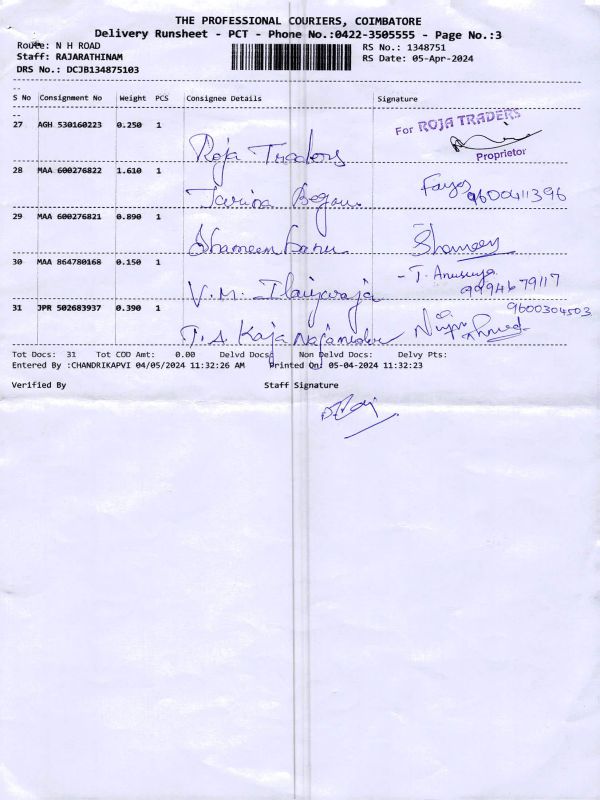 THE PROFESSIONAL COURIERS, COIMBATORE
Delivery Runsheet - PCT - Phone No.:0422-3505555 - Page No.:3
Route: N H ROAD
RS No.: 1348751
Staff: RAJARATHINAM
RS Date: 05-Apr-2024
DRS No.: DCJB134875103
S No Consignment No Weight PCS Consignee Details Signature
27 AGH 530160223 0.250 1 Roja Traders For ROJA TRADERS
Proprietor
28 MAA 600276822 1.610 1 Begam Fayaz 9600411396
29 MAA 600276821 0.890 1 Shameem banu Shameem
30 MAA 864780168 0.150 1 V.M. Ilaiyaraja - T. Anusuya
9994679117
31 JPR 502683937 0.390 1 T.A. Kaja 9600304503
Ahmed
Tot Docs: 31 Tot COD Amt: 0.00 Delvd Docs: Non Delvd Docs: Delvy Pts:
Entered By :CHANDRIKAPVI 04/05/2024 11:32:26 AM Printed On: 05-04-2024 11:32:23
Verified By Staff Signature